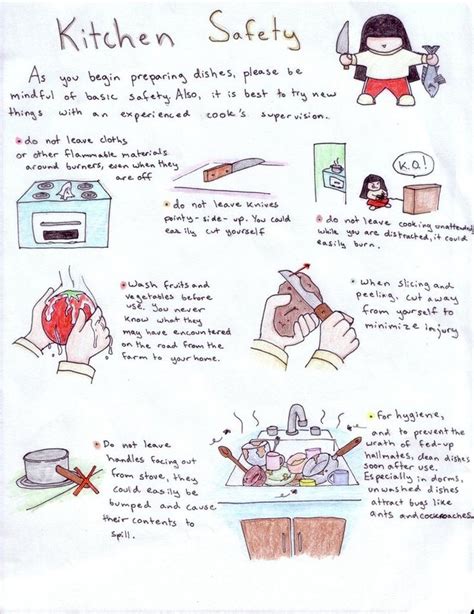 Kitchen Safety
As you begin preparing dishes, please be
mindful of basic safety. Also, it is best to try new
things with an experienced cook's supervision.
• do not leave cloths
or other flammable materials
around burners, even when they
are off
• do not leave knives
pointy-side-up. You could
easily cut yourself
K.O.!
• do not leave cooking unattended
while you are distracted, it could
easily burn.
• Wash fruits and
vegetables before
use. You never
know what they
may have encountered
on the road from the
farm to your home.
• When slicing and
peeling, cut away
from yourself to
minimize injury
• Do not leave
handles facing out
from stove, they
could easily be
bumped and cause
their contents to
spill.
• For hygiene,
and to prevent the
wrath of fed-up
hallmates, clean dishes
soon after use.
Especially in dorms,
unwashed dishes
attract bugs like
ants and cockroaches.